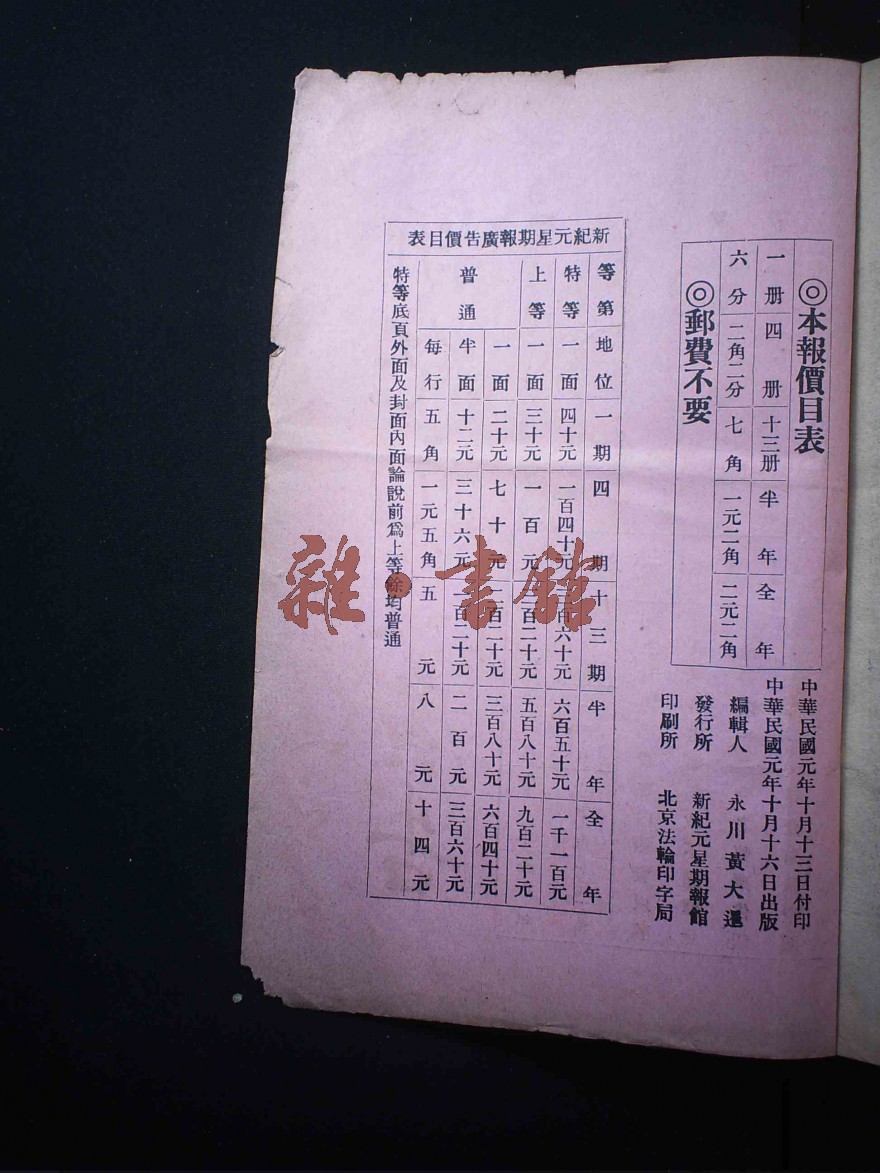 ◎本報價目表
一册 四册 十三册 半年 全年
六分 二角二分 七角 一元二角 二元二角
◎郵費不要
中華民國元年十月十三日付印
中華民國元年十月十六日出版
編輯人 永川黃大暹
發行所 新紀元星期報館
印刷所 北京法輪印字局
新紀元星期報廣告價目表
等第 地位 一期 四期 十三期 半年 全年
特等 一面 四十元 一百四十元 百六十元 六百五十元 一千一百元
上等 一面 三十元 一百元 百二十元 五百八十元 九百二十元
普通 一面 二十元 七十元 百二十元 三百八十元 六百四十元
半面 十二元 三十六元 百二十元 二百元 三百六十元
每行 五角 一元五角 五元 八元 十四元
特等底頁外面及封面內面論說前爲上等餘均普通
雜·書館